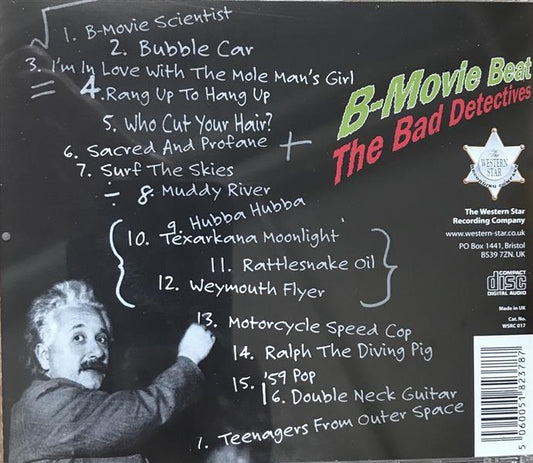 1. B-Movie Scientist
2. Bubble Car
3. I'm In Love With The Mole Man's Girl
4. Rang Up To Hang Up
5. Who Cut Your Hair?
6. Sacred And Profane
7. Surf The Skies
8. Muddy River
9. Hubba Hubba
10. Texarkana Moonlight
11. Rattlesnake Oil
12. Weymouth Flyer
13. Motorcycle Speed Cop
14. Ralph The Diving Pig
15. '59 Pop
16. Double Neck Guitar
1. Teenagers From Outer Space
B-Movie Beat
The Bad Detectives
The
WESTERN
STAR
RECORDING COMPANY
The Western Star
Recording Company
www.western-star.co.uk
PO Box 1441, Bristol
BS39 7ZN. UK
COMPACT
disc
DIGITAL AUDIO
Made in UK
Cat. No.
WSRC 017
5 060051 823787